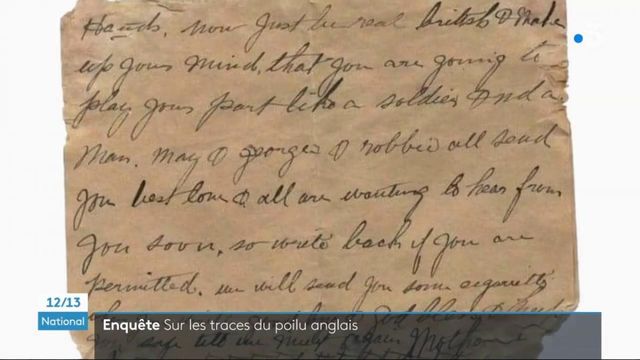 Hands. now just be real british & make
up your mind, that you are going to
play your part like a soldier and a
man. may & george & robbie all send
you best love & all are wanting to hear from
you soon, so write back if you are
permitted. we will send you some cigarettes
god bless &
you safe till we meet again Mother
12/13
National
Enquête Sur les traces du poilu anglais